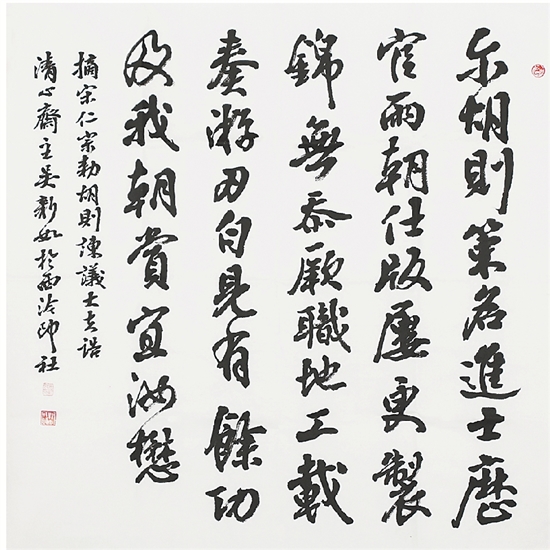 尔胡则策名進士歷
官兩朝仕版屢更製
錦無忝厥職地工載
奏游刃自見有餘功
及我朝賞宜汝懋
摘宋仁宗勅胡則諫議士夫誥
清心齋主吳新如於西泠印社